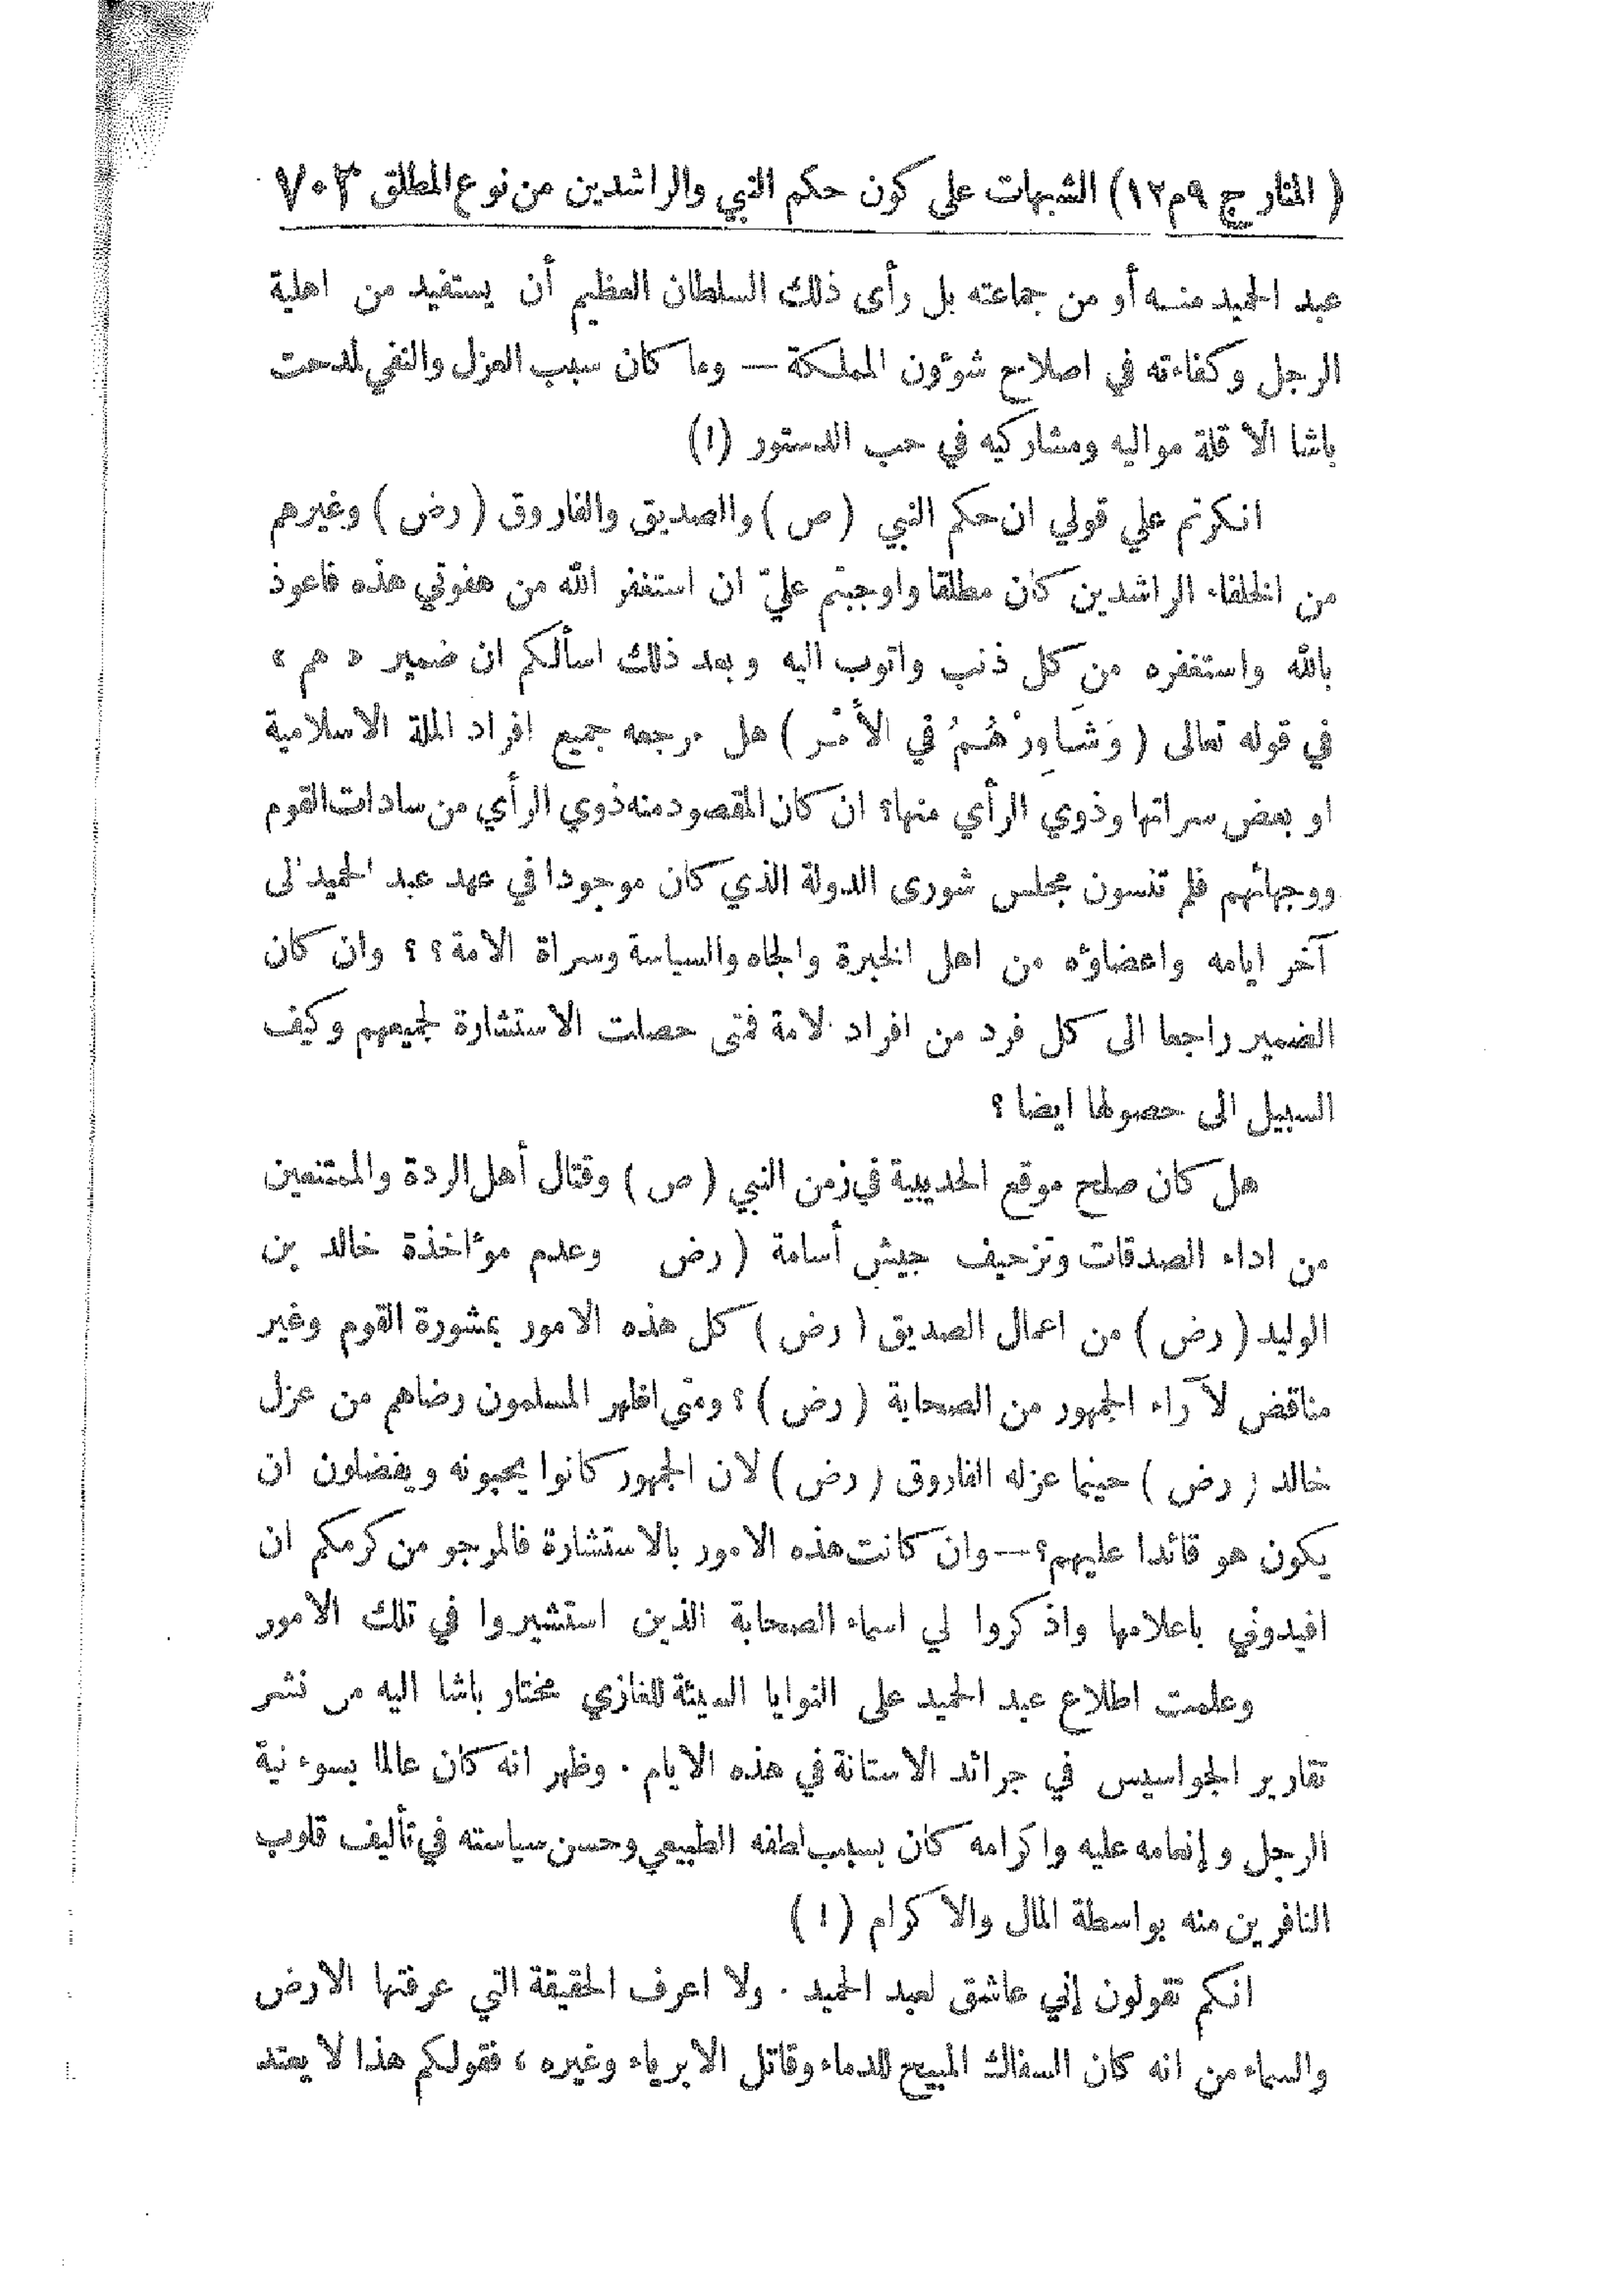 ( المنار ج ٩ م ١٢ ) الشبهات على كون حكم النبي والراشدين من نوع المطلق ٧٠٣
عبد الحميد منه أو من جماعته بل رأى ذلك السلطان العظيم أن يستفيد من اهلية
الرجل وكفاءته في اصلاح شوٴون المملكة — وما كان سبب العزل والنفي لمدحت
باشا الا قلة مواليه ومشاركيه في حب الدستور (١)
انكرتم علي قولي ان حكم النبي ( ص ) والصديق والفاروق ( رض ) وغيرهم
من الخلفاء الراشدين كان مطلقا واوجبتم عليّ ان استغفر الله من هفوتي هذه فاعوذ
بالله واستغفره من كل ذنب واتوب اليه وبعد ذلك اسألكم ان ضمير « هم »
في قوله تعالى ( وَشَاوِرْهُمْ في الأَمْر ) هل مرجعه جميع افراد الملة الاسلامية
او بعض سراتها وذوي الرأي منها؟ ان كان المقصود منه ذوي الرأي من سادات القوم
ووجهائهم فلم تنسون مجلس شورى الدولة الذي كان موجودا في عهد عبد الحميد الى
آخر ايامه واعضاوٴه من اهل الخبرة والجاه والسياسة وسراة الامة ؟ ؟ وان كان
الضمير راجعا الى كل فرد من افراد لامة فمتى حصلت الاستشارة لجميعهم وكيف
السبيل الى حصولها ايضا ؟
هل كان صلح موقع الحديبية في زمن النبي ( ص ) وقتال أهل الردة والممتنعين
من اداء الصدقات وتزحيف جيش أسامة ( رض وعدم موٴاخذة خالد بن
الوليد ( رض ) من اعمال الصديق ( رض ) كل هذه الامور بمشورة القوم وغير
مناقض لآراء الجمهور من الصحابة ( رض ) ؟ ومتى اظهر المسلمون رضاهم من عزل
خالد ( رض ) حينما عزله الفاروق ( رض ) لان الجمهور كانوا يحبونه ويفضلون ان
يكون هو قائدا عليهم؟ — وان كانت هذه الامور بالاستشارة فالمرجو من كرمكم ان
افيدوني باعلامها واذكروا لي اسماء الصحابة الذين استشيروا في تلك الامور
وعلمت اطلاع عبد الحميد على النوايا السيئة للغازي مختار باشا اليه من نشر
تقارير الجواسيس في جرائد الاستانة في هذه الايام . وظهر انه كان عالما بسوء نية
الرجل وإنعامه عليه واكرامه كان بسبب لطفه الطبيعي وحسن سياسته في تأليف قلوب
النافرين منه بواسطة المال والاكرام ( ١ )
انكم تقولون إني عاشق لعبد الحميد . ولا اعرف الحقيقة التي عرفتها الارض
والسماء من انه كان السفاك المبيح للدماء وقاتل الابرياء وغيره ، فقولكم هذا لا يعتد